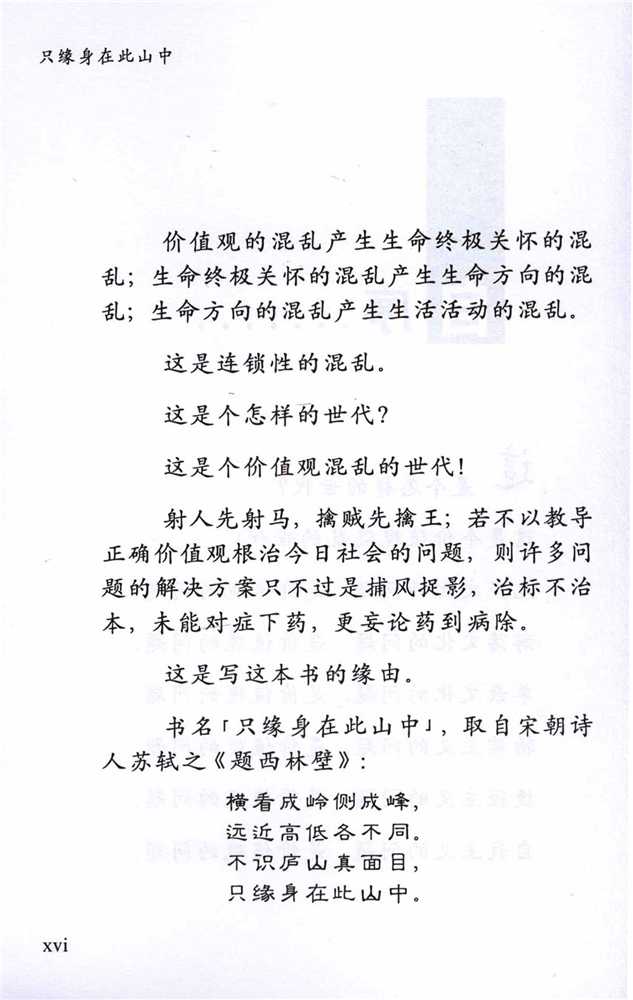 只缘身在此山中
价值观的混乱产生生命终极关怀的混
乱；生命终极关怀的混乱产生生命方向的混
乱；生命方向的混乱产生生活活动的混乱。
这是连锁性的混乱。
这是个怎样的世代？
这是个价值观混乱的世代！
射人先射马，擒贼先擒王；若不以教导
正确价值观根治今日社会的问题，则许多问
题的解决方案只不过是捕风捉影，治标不治
本，未能对症下药，更妄论药到病除。
这是写这本书的缘由。
书名「只缘身在此山中」，取自宋朝诗
人苏轼之《题西林壁》：
横看成岭侧成峰，
远近高低各不同。
不识庐山真面目，
只缘身在此山中。
xvi